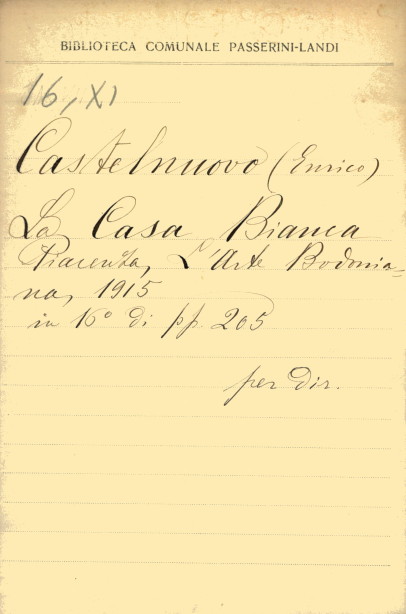 BIBLIOTECA COMUNALE PASSERINI-LANDI
16, XI
Castelnuovo (Enrico)
La Casa Bianca
Piacenza, L'Arte Bodonia-
na, 1915
in 16° di pp. 205
per dir.